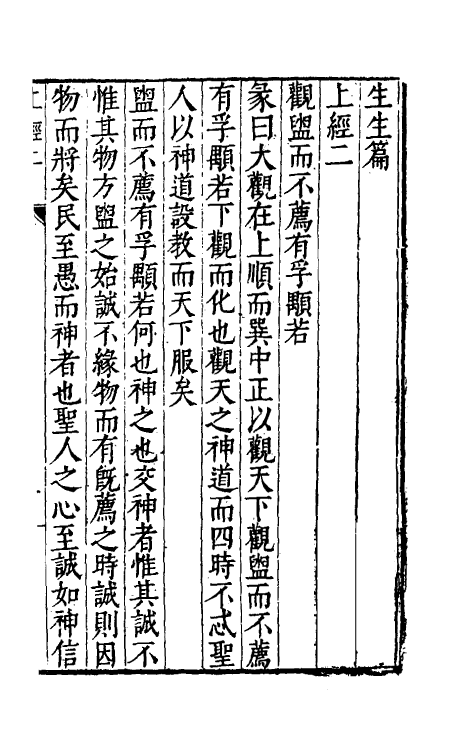 生生篇
上經二
觀盥而不薦有孚顒若
彖曰大觀在上順而巽中正以觀天下觀盥而不薦
有孚顒若下觀而化也觀天之神道而四時不忒聖
人以神道設教而天下服矣
盥而不薦有孚顒若何也神之也交神者惟其誠不
惟其物方盥之始誠不緣物而有旣薦之時誠則因
物而將矣民至愚而神者也聖人之心至誠如神信
上經二